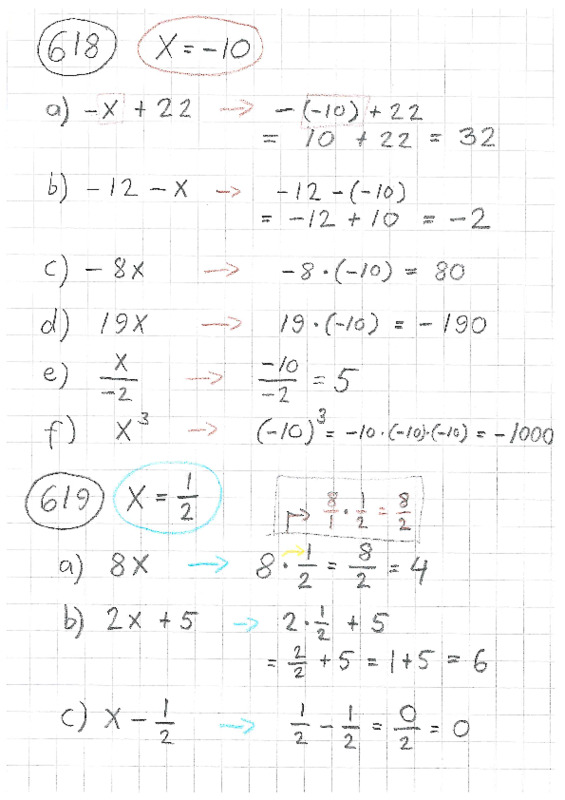 618 X = -10
a) -X + 22 → -(-10) + 22
= 10 + 22 = 32
b) -12 - X → -12 - (-10)
= -12 + 10 = -2
c) - 8X → -8 · (-10) = 80
d) 19X → 19 · (-10) = -190
e) X/-2 → -10/-2 = 5
f) X³ → (-10)³ = -10 · (-10) · (-10) = -1000
619 X = 1/2
→ 8/1 · 1/2 = 8/2
a) 8X → 8 · 1/2 = 8/2 = 4
b) 2X + 5 → 2 · 1/2 + 5
= 2/2 + 5 = 1 + 5 = 6
c) X - 1/2 → 1/2 - 1/2 = 0/2 = 0